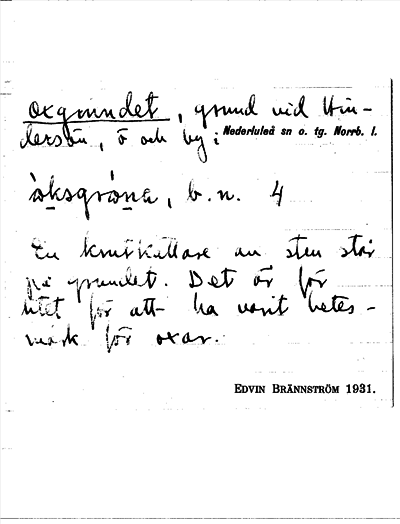 oxgrundet, grund vid Hin-
dersön, ö och by i Nederluleå sn o. tg. Norrb. l.
b.n. 4
En av sten står
på grundet. Det är för
litet för att ha varit betes-
mark för oxar.
EDVIN BRÄNNSTRÖM 1931.